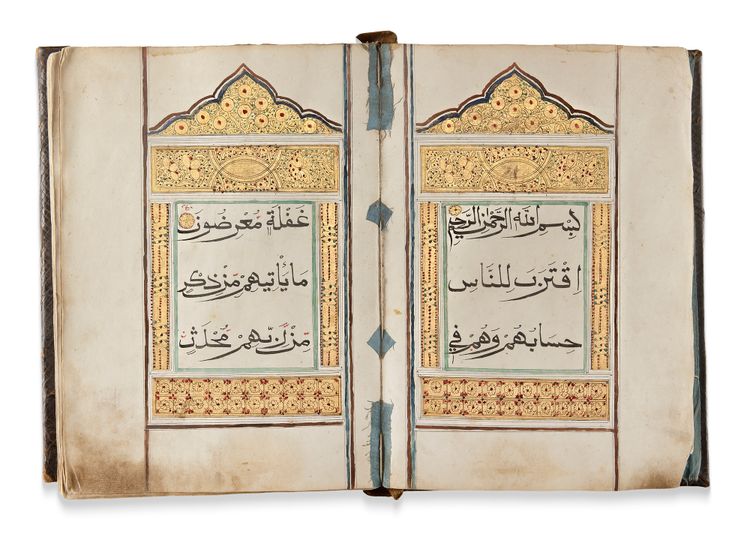 بِسْمِ اللَّهِ الرَّحْمٰنِ الرَّحِيمِ
اِقْتَرَبَ لِلنَّاسِ
حِسَابُهُمْ وَهُمْ فِي
غَفْلَةٍ مُعْرِضُونَ
مَا يَأْتِيهِمْ مِنْ ذِكْرٍ
مِنْ رَبِّهِمْ مُحْدَثٍ